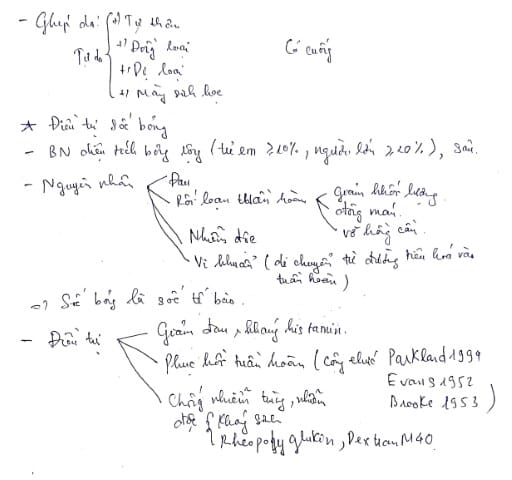 - Ghép da: +) Tự thân
Tự do +) Đồng loại Có cuống
+) Dị loại
+) Màng sinh học
* Điều trị sốc bỏng
- BN diện tích bỏng rộng (trẻ em ≥10%, người lớn ≥20%), sâu.
- Nguyên nhân Đau
Rối loạn tuần hoàn Giảm khối lượng
động mạch
vỡ hồng cầu.
Nhiễm độc
Vi khuẩn (di chuyển từ đường tiêu hoá vào
tuần hoàn)
=> Sốc bỏng là sốc tế bào.
- Điều trị Giảm đau, kháng histamin.
Phục hồi tuần hoàn (công thức Parkland 1974
Evans 1952
Brooke 1953)
Chống nhiễm trùng, nhiễm
độc Kháng sinh
Rheopolyglukin, Dextran M40